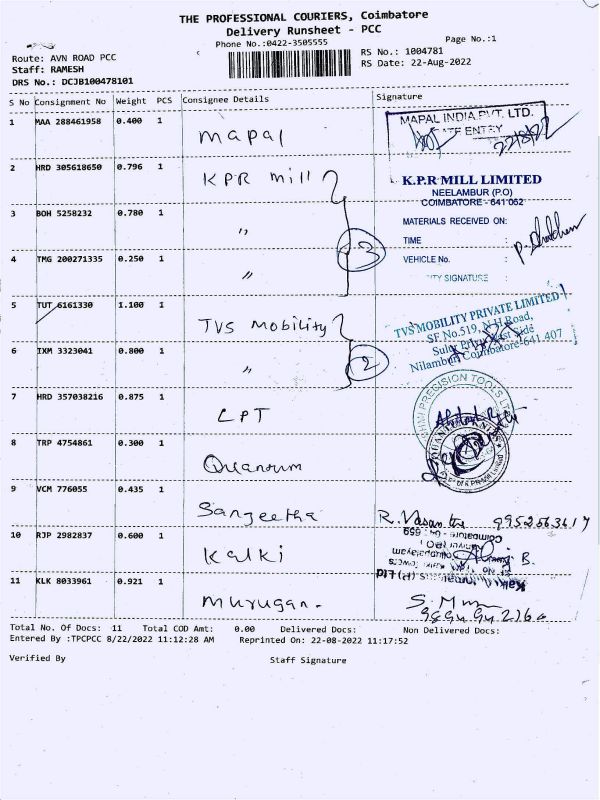 THE PROFESSIONAL COURIERS, Coimbatore
Delivery Runsheet - PCC
Phone No.:0422-3505555
Page No.:1
Route: AVN ROAD PCC
Staff: RAMESH
DRS No.: DCJB100478101
RS No.: 1004781
RS Date: 22-Aug-2022
S No Consignment No Weight PCS Consignee Details Signature
1 MAA 288461958 0.400 1 Mapal
MAPAL INDIA PVT. LTD.
ENTRY
22/8/22
2 HRD 305618650 0.796 1 KPR mill
K.P.R MILL LIMITED
NEELAMBUR (P.O)
COIMBATORE - 641 062
3 BOH 5258232 0.780 1 "
3
MATERIALS RECEIVED ON:
TIME
4 TMG 200271335 0.250 1 "
VEHICLE No. :
SIGNATURE :
5 TUT 6161330 1.100 1 TVS Mobility
TVS MOBILITY PRIVATE LIMITED
SF No.519, N.H.Road,
Side
Nilambur Coimbatore-641 407
6 IXM 3323041 0.800 1 "
2
7 HRD 357038216 0.875 1 LPT
PRECISION TOOLS
8 TRP 4754861 0.300 1 Quantum
9 VCM 776055 0.435 1 Sangeetha
R. Vasantha 9952563617
10 RJP 2982837 0.600 1 Kalki
11 KLK 8033961 0.921 1 Murugan.
Total No. Of Docs: 11 Total COD Amt: 0.00 Delivered Docs: Non Delivered Docs:
Entered By :TPCPCC 8/22/2022 11:12:28 AM Reprinted On: 22-08-2022 11:17:52
Verified By Staff Signature